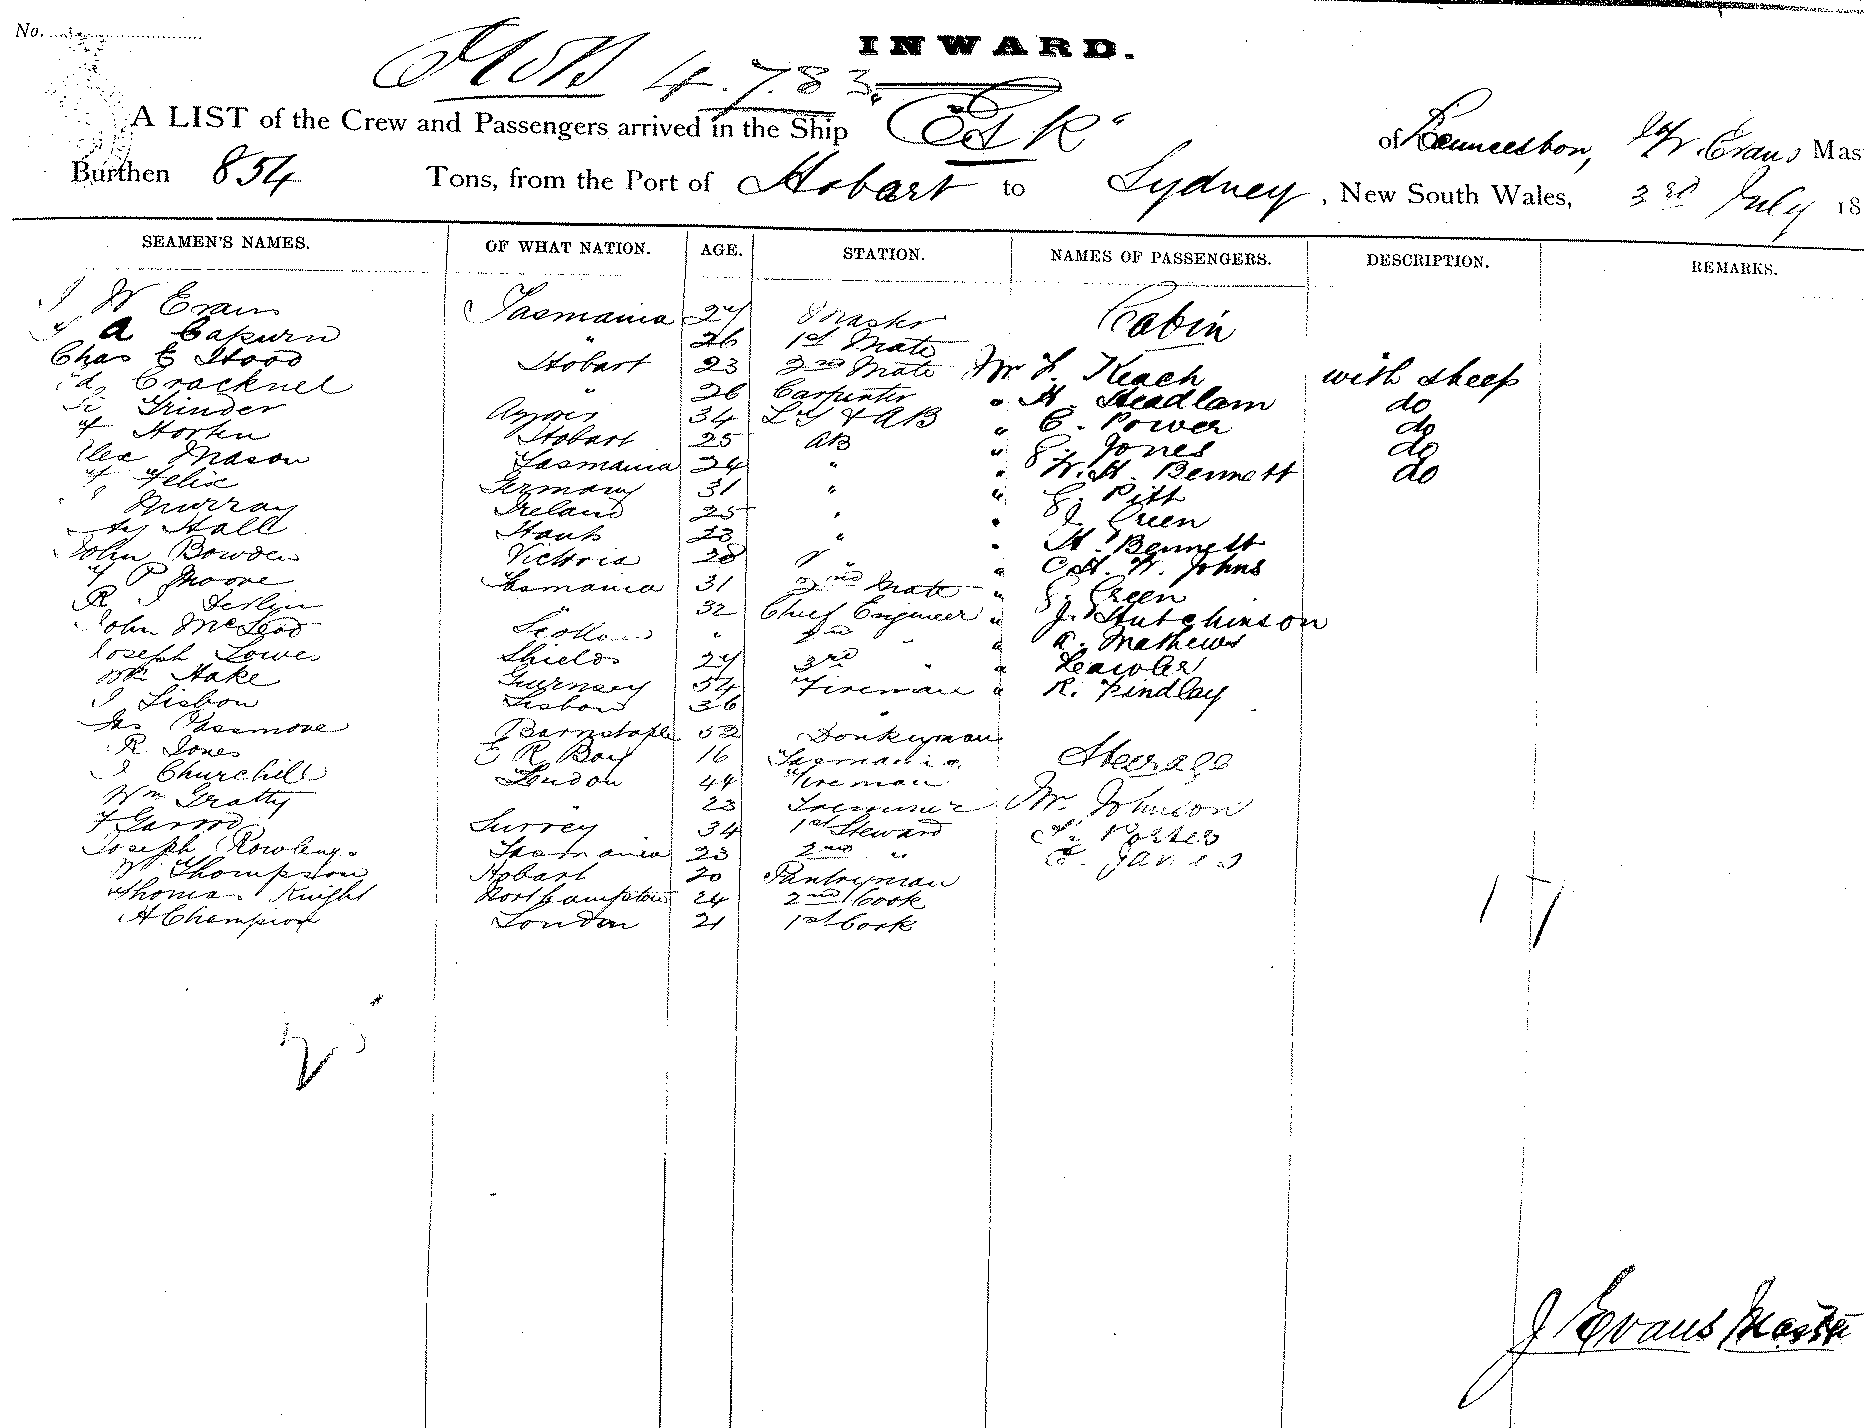 No.
INWARD.
HOB 4.7.83
A LIST of the Crew and Passengers arrived in the Ship "Esk" of Launceston, J W. Evans Mas
Burthen 854 Tons, from the Port of Hobart to Sydney, New South Wales, 3rd July 18
SEAMEN'S NAMES. OF WHAT NATION. AGE. STATION. NAMES OF PASSENGERS. DESCRIPTION. REMARKS.
J W Evans Tasmania 27 Master Cabin
A Capurn " 26 1st Mate
Chas E Hood Hobart 23 2nd Mate Mr F. Keach with sheep
Cracknel " 26 Carpenter " H. Headlam do
Grinder 34 L T & AB " C. Power do
Horten Hobart 25 AB " G. Jones do
Mason Tasmania 24 " " W. H. Bennett do
Felix Germany 31 " " G. Pitt
Murray Ireland 25 " " J. Green
Hall Hants 23 " " H. Bennett
John Bowden Victoria 28 " " C H. W. Johns
P Moore Tasmania 31 2nd Mate " G. Green
R J " 32 Chief Engineer " J. Hutchinson
John McLeod " 2nd " " A. Mathews
Joseph Lowes Shields 27 3rd " " Lawler
Hake Guernsey 54 Fireman " R. Findlay
J Lisbon Lisbon 36 "
Jas Passmore Barnstaple 52 Donkeyman
R Jones E R Boy 16 Tasmania Steerage
J Churchill London 44 Fireman
Wm Gratty " 23 Trimmer Mr. Johnson
F Garrod Surrey 34 1st Steward Porter
Joseph Rowlings Tasmania 23 2nd " James
W Thompson Hobart 20 Pantryman
Thomas Knight Northampton 24 2nd Cook
H Champion London 21 1st Cook
17
J Evans Master